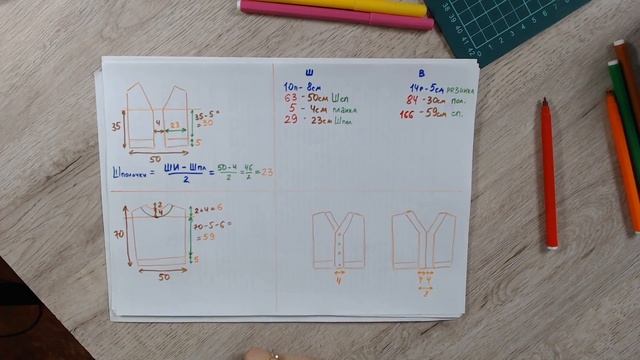 35
4
23
35-5=
=30
5
50
Шполочки = ШИ - Шпл / 2 = 50-4 / 2 = 46 / 2 = 23
2
4
70
2+4=6
70-5-6=
=59
5
50
Ш
10п - 8см
63 - 50см Шсп
5 - 4см планка
29 - 23см Шпол
В
14р - 5см резинка
84 - 30см пол.
166 - 59см сп.
4
4 4